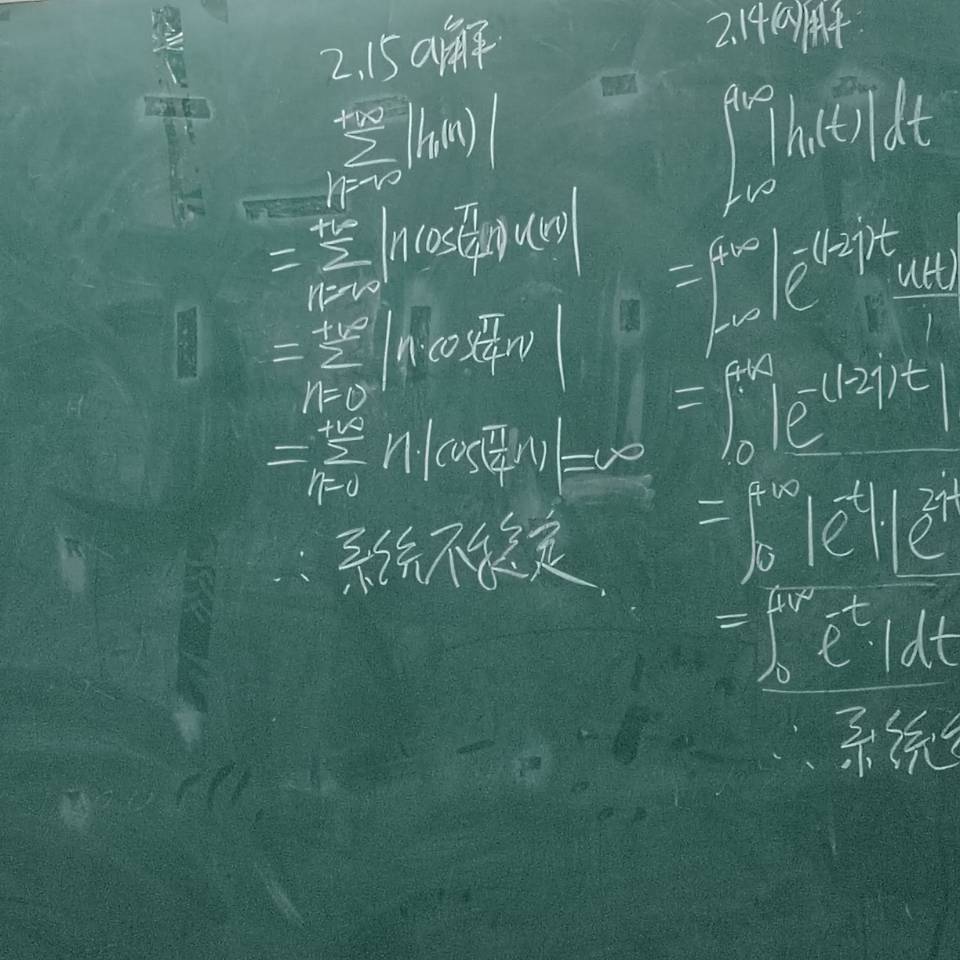 2.15 a解
+∞
∑ |h₁(n)|
n=-∞
+∞
= ∑ |n cos(π/4 n) u(n)|
n=-∞
+∞
= ∑ |n·cos(π/4 n)|
n=0
+∞
= ∑ n·|cos(π/4 n)|=∞
n=0
∴ 系统不稳定
2.14(a)解:
∫_{-∞}^{+∞} |h₁(t)|dt
= ∫_{-∞}^{+∞} |e^{-(1-2j)t} u(t)|
= ∫_0^{+∞} |e^{-(1-2j)t}|
= ∫_0^{+∞} |e^{-t}|·|e^{2jt}
= ∫_0^{+∞} e^{-t}·1dt
∴ 系统